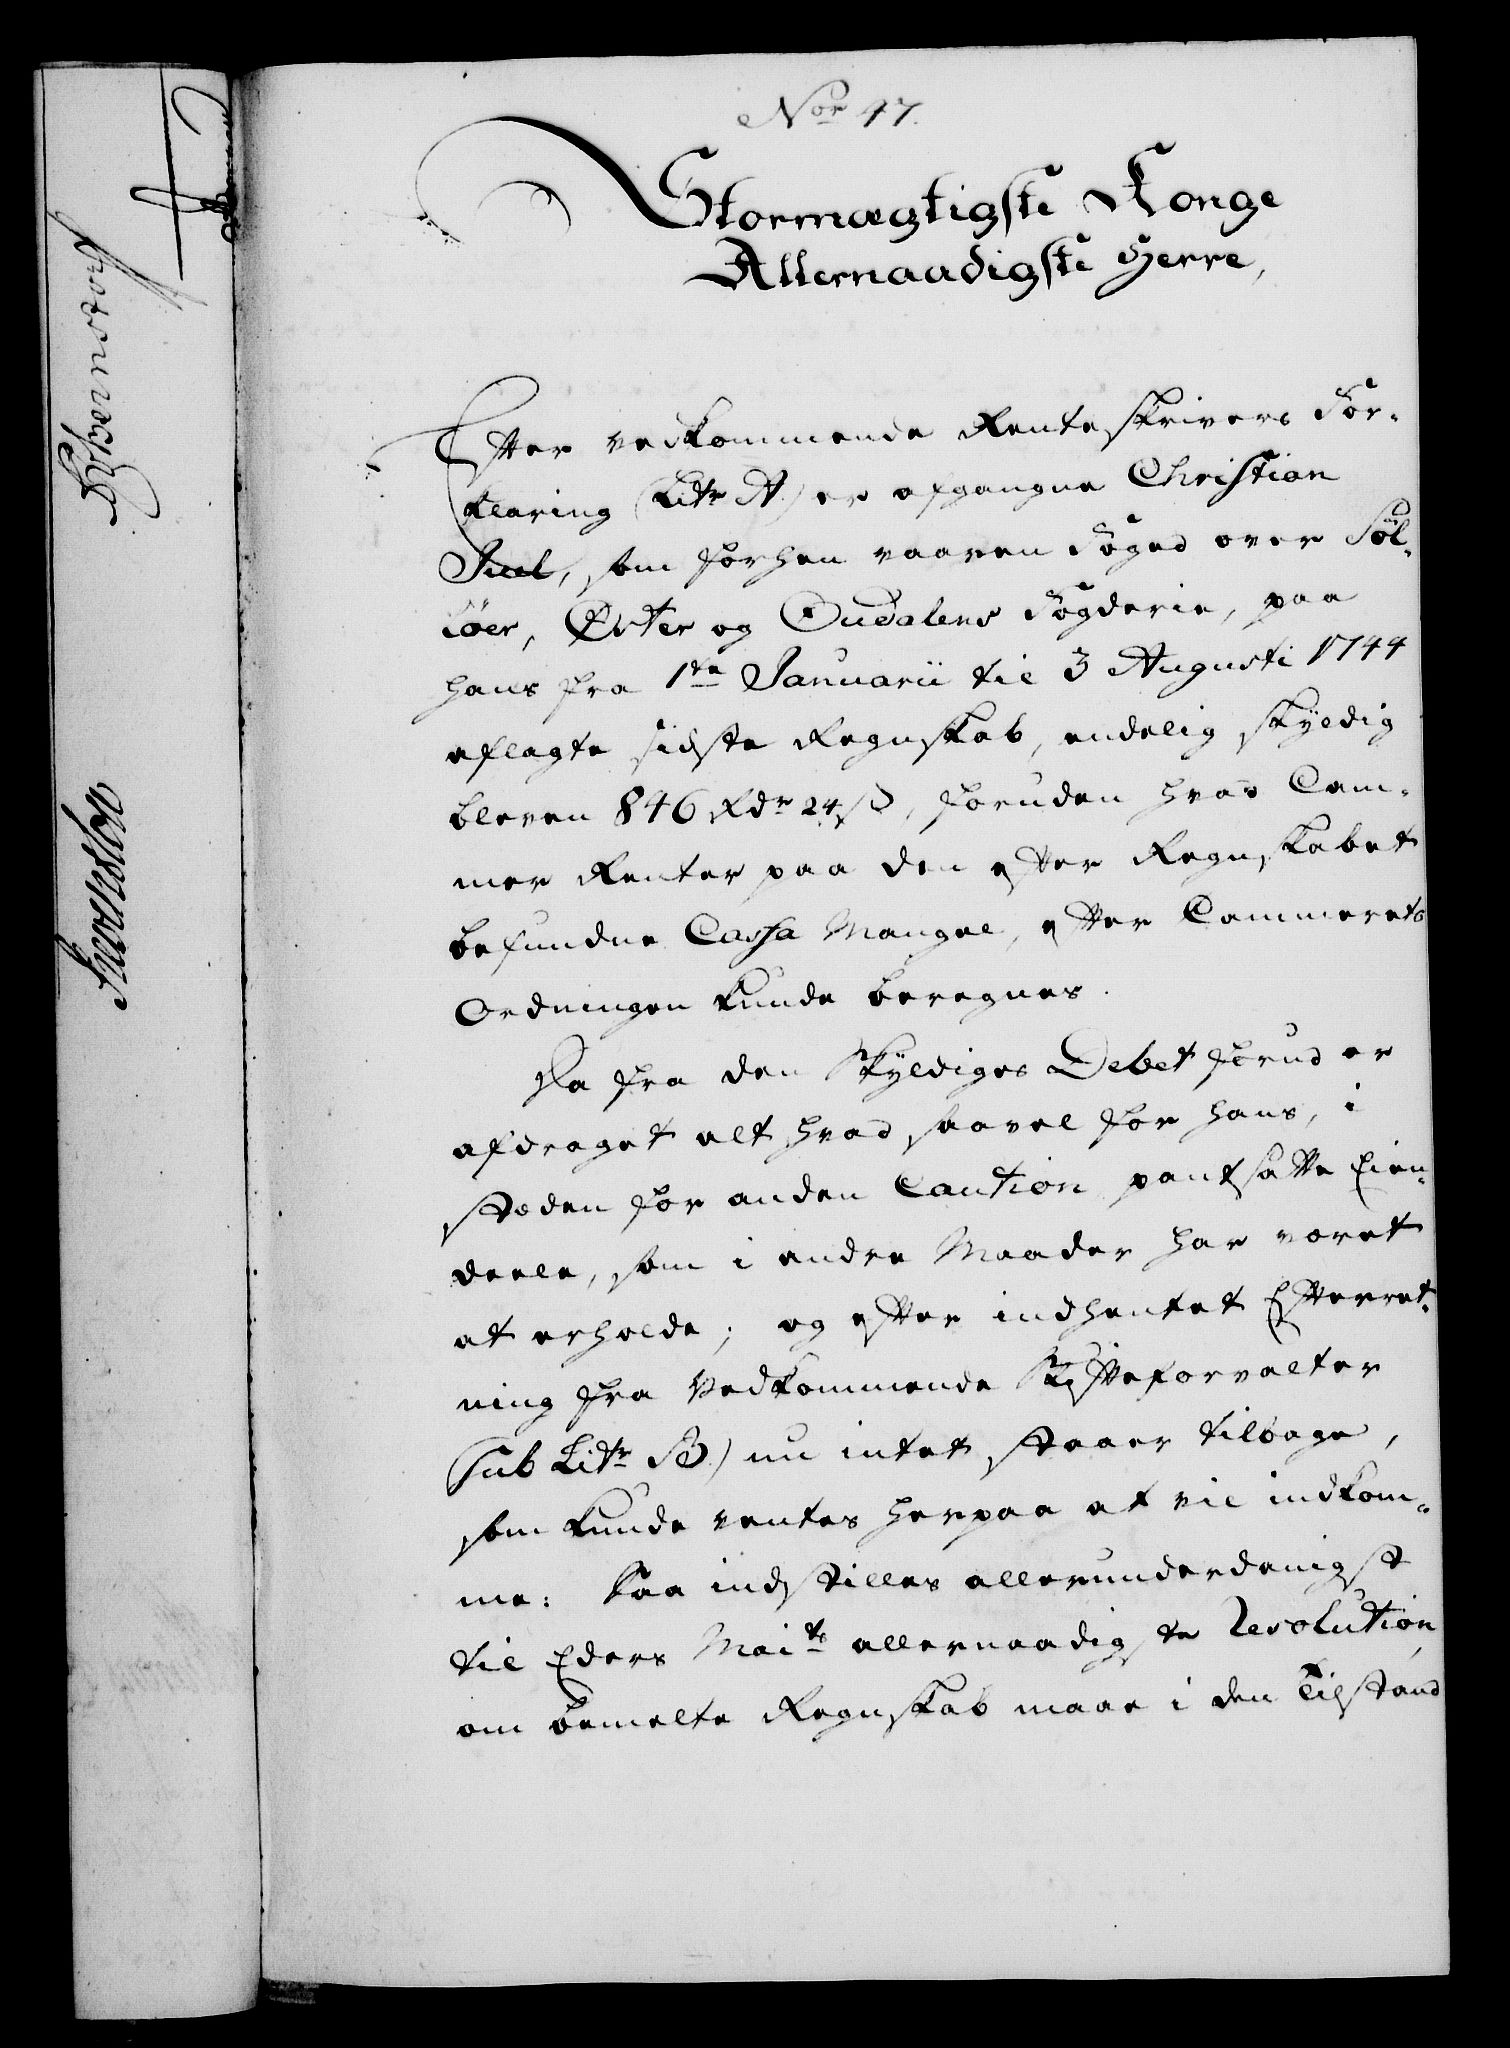 Nor 47.
Stormægtigste Konge
Allernaadigste Herre,
Efter vedkommende Renteskrivers For-
klaring (Litr A) er afgangne Christian
Juel, som forhen vaaren Foged over Søl-
löer, Öster og Oudalens Fogderie, paa
hans fra 1te Januarii til 3 Augusti 1744
aflagte sidste Regnskab, endelig skyldig
bleven 846 Rdr 24 ß, foruden hvad Cam-
mer Renter paa den efter Regnskabet
befundne Cassa Mangel, efter Cammerets
Ordningen kunde beregnes.
Da fra den Skyldiges Debet forud er
afdraget alt hvad saavel for hans, i
steden for anden Caution pantsatte Eien-
deele, som i andre Maader har været
at erholde; og efter indhentet Efterret-
ning fra Vedkommende Skifteforvalter
(sub Litr B) nu intet staaer tilbage,
som kunde ventes herpaa at vil indkom-
me: Saa indstilles allerunderdanigst
til Eders Maits allernaadigste Resolution,
om bemelte Regnskab maae i den Tilstand